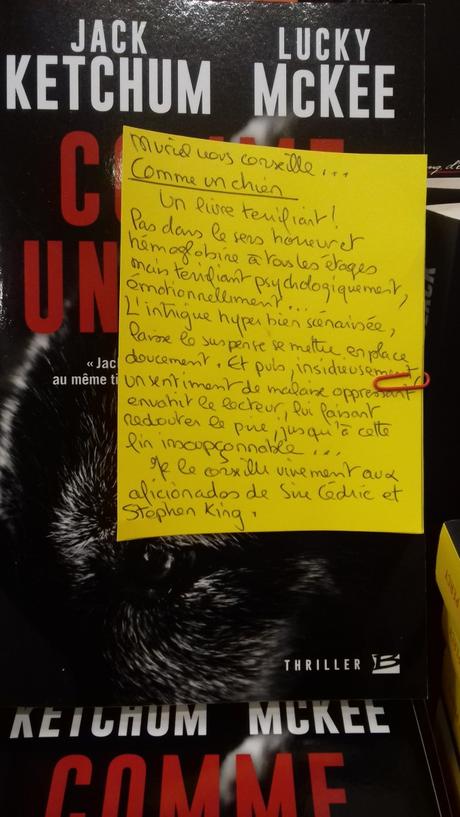 JACK LUCKY
KETCHUM McKEE
CO
UN
« Jac
au même ti
Muriel vous conseille...
Comme un chien
Un livre terrifiant !
Pas dans le sens horreur et
hémoglobine à tous les étages
mais terrifiant psychologiquement,
émotionnellement...
L'intrigue hyper bien scénarisée,
laisse le suspense se mettre en place
doucement. Et puis, insidieusement,
un sentiment de malaise oppressant
envahit le lecteur, lui faisant
redouter le pire, jusqu'à cette
fin insoupçonnable...
Je le conseille vivement aux
aficionados de Sire Cédric et
Stephen King.
THRILLER B
KETCHUM McKEE
COMME